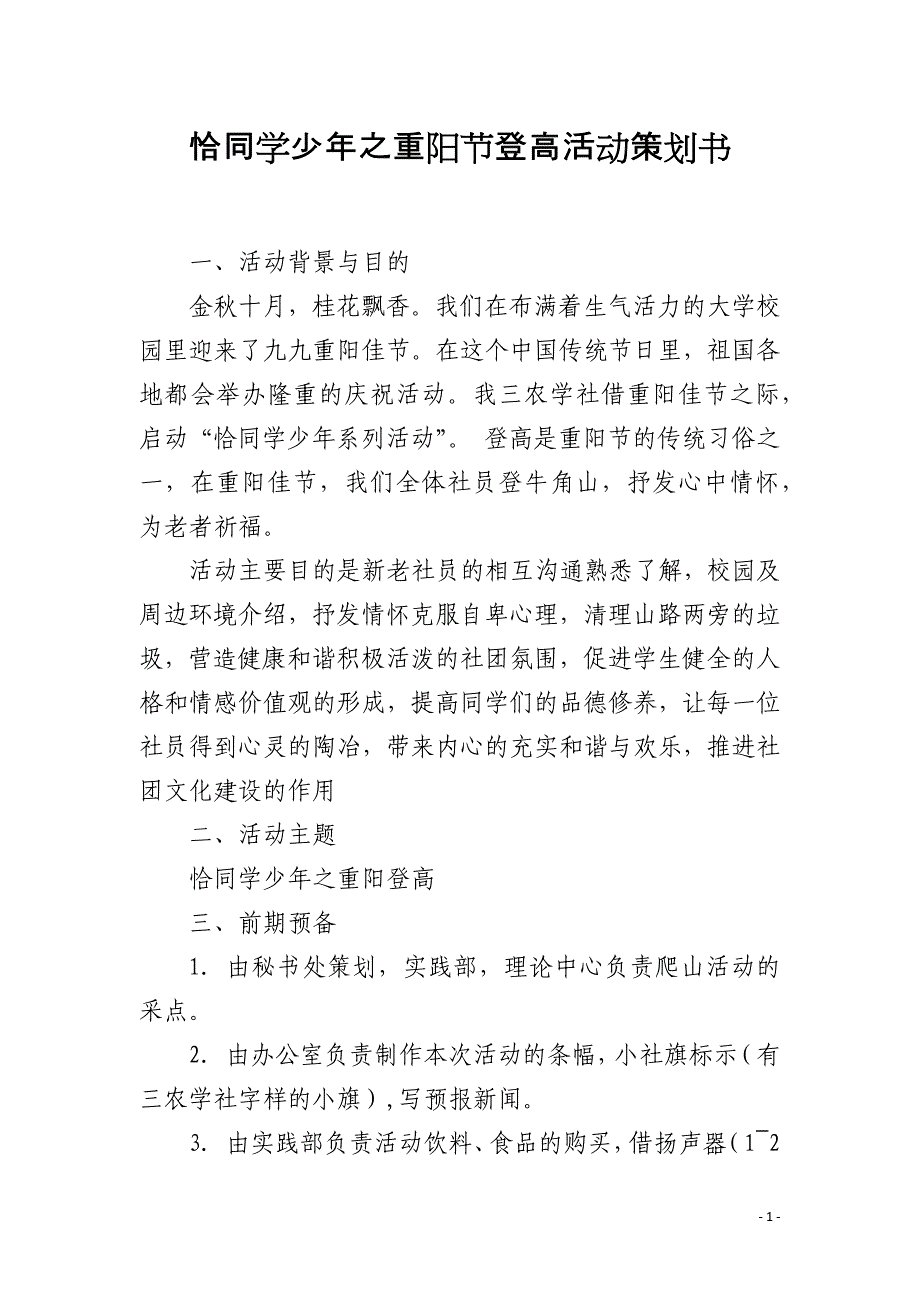 恰同学少年之重阳节登高活动策划书
一、活动背景与目的
金秋十月，桂花飘香。我们在布满着生气活力的大学校
园里迎来了九九重阳佳节。在这个中国传统节日里，祖国各
地都会举办隆重的庆祝活动。我三农学社借重阳佳节之际，
启动“恰同学少年系列活动”。 登高是重阳节的传统习俗之
一，在重阳佳节，我们全体社员登牛角山，抒发心中情怀，
为老者祈福。
活动主要目的是新老社员的相互沟通熟悉了解，校园及
周边环境介绍，抒发情怀克服自卑心理，清理山路两旁的垃
圾，营造健康和谐积极活泼的社团氛围，促进学生健全的人
格和情感价值观的形成，提高同学们的品德修养，让每一位
社员得到心灵的陶冶，带来内心的充实和谐与欢乐，推进社
团文化建设的作用
二、活动主题
恰同学少年之重阳登高
三、前期预备
1. 由秘书处策划，实践部，理论中心负责爬山活动的
采点。
2. 由办公室负责制作本次活动的条幅，小社旗标示（有
三农学社字样的小旗）,写预报新闻。
3. 由实践部负责活动饮料、食品的购买，借扬声器（1¯2
- 1 -